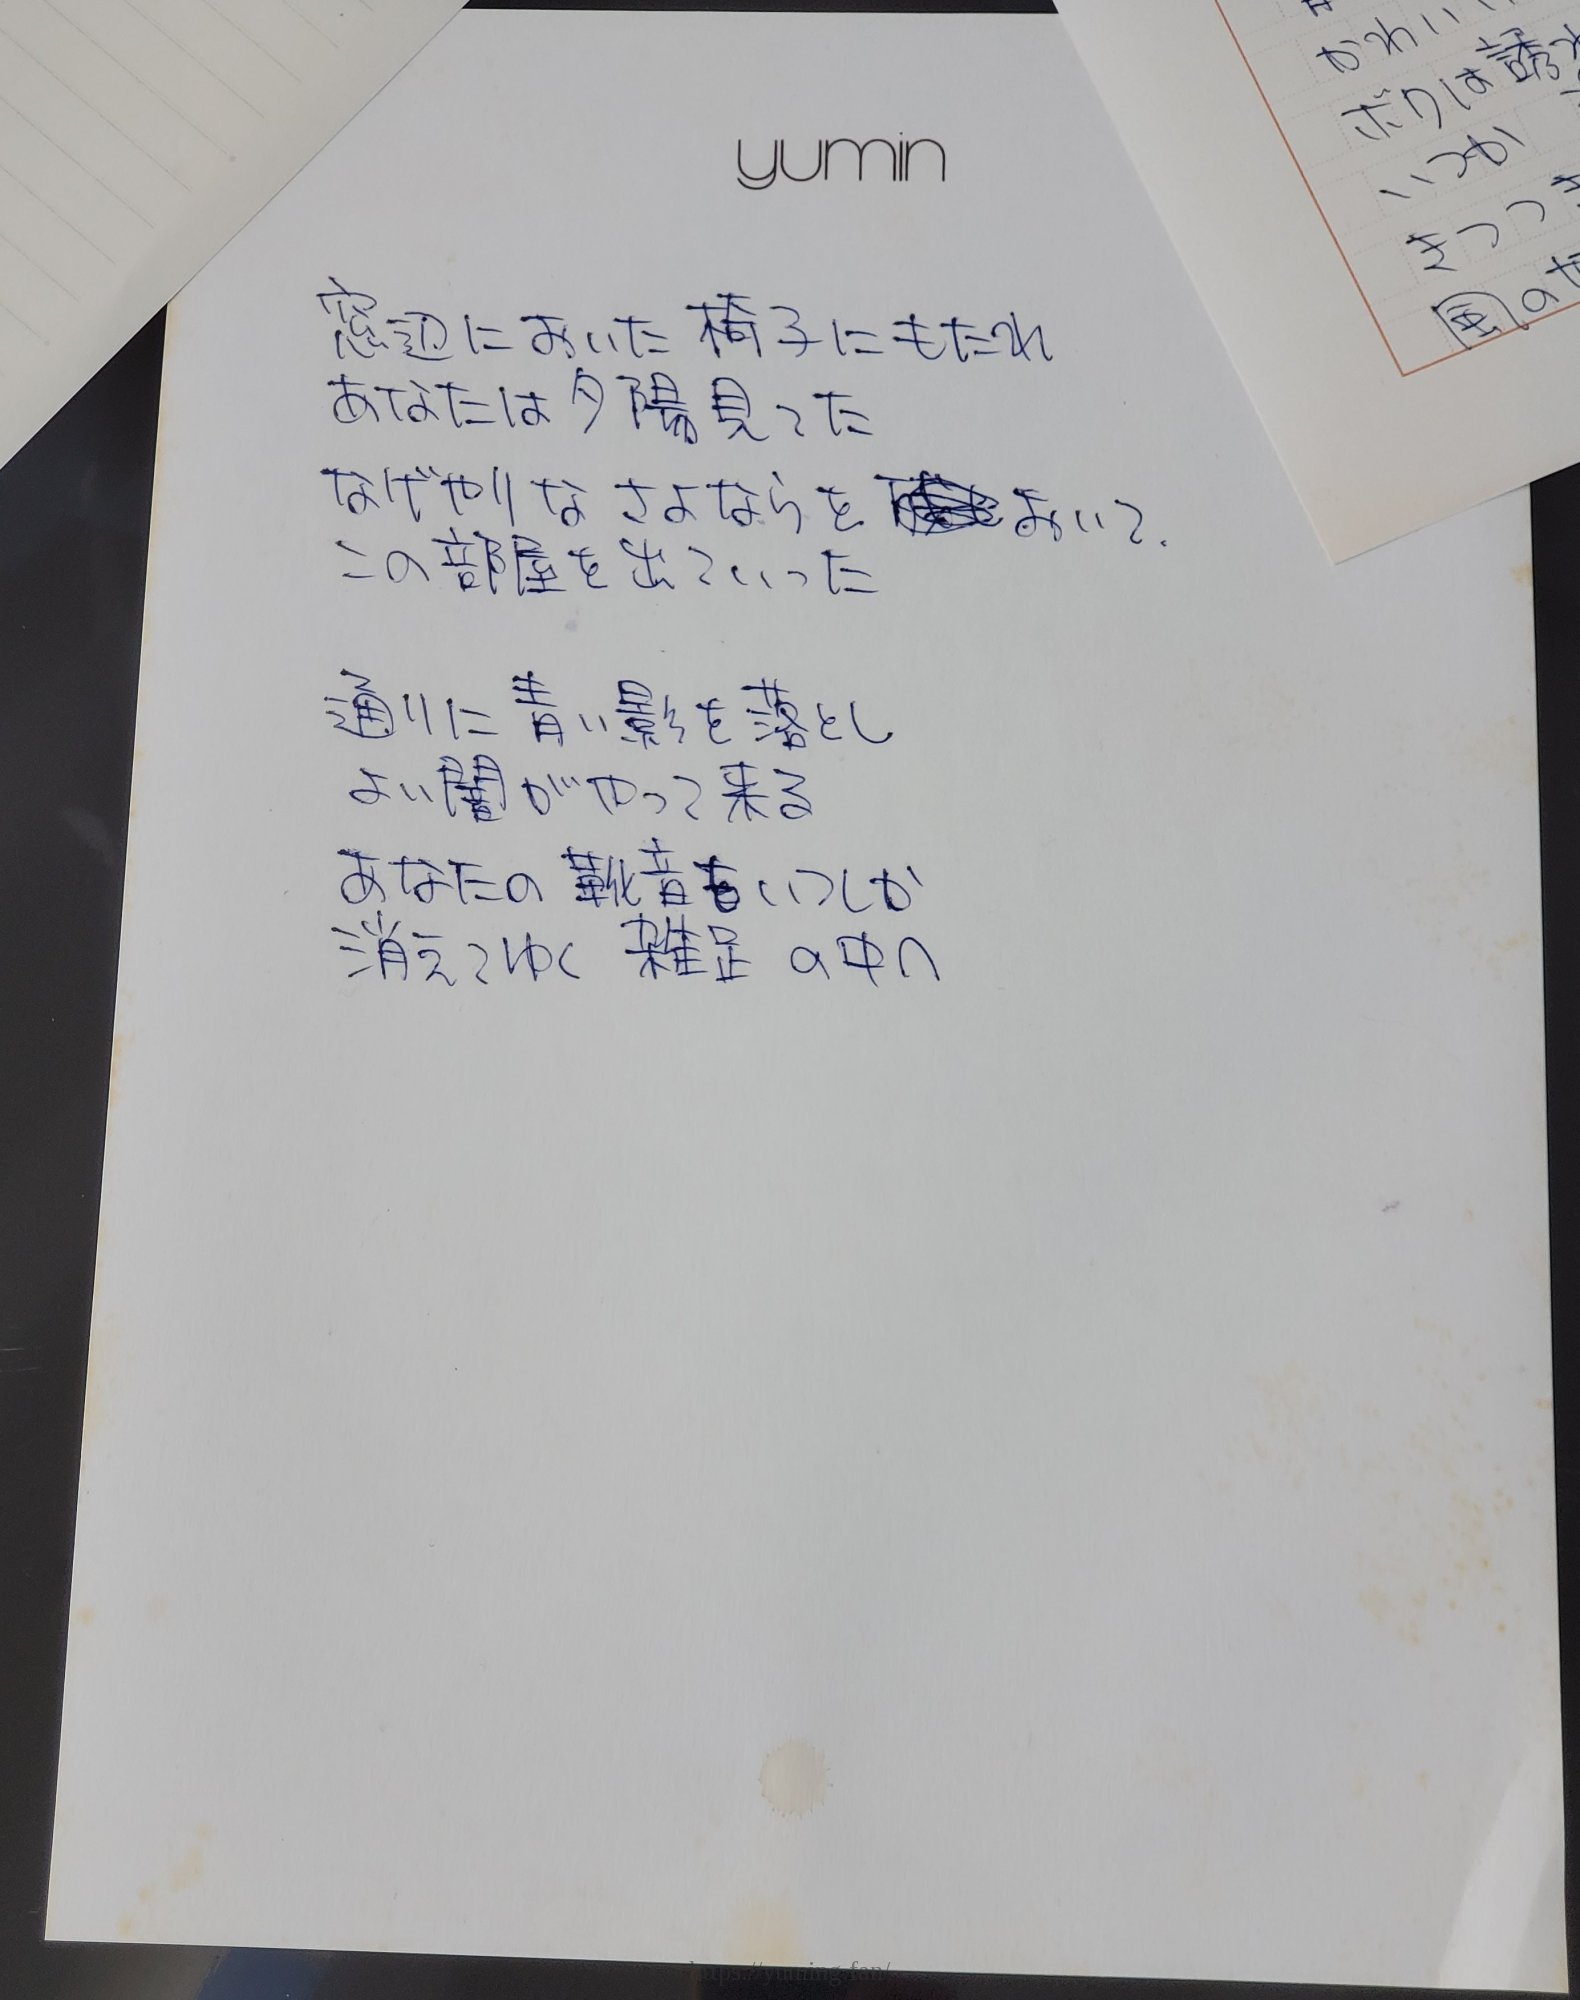 yumin
窓辺においた椅子にもたれ
あなたは夕陽見てた
なげやりなさよならを おいて.
この部屋を出ていった
通りに青い影を落とし
よい闇がやって来る
あなたの靴音もいつしか
消えてゆく 雑足の中へ
かれい
ボクは誘わ
いつか
きつつき
風の